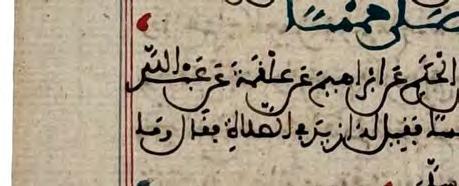 صلى خمسا
الحكم عن ابراهيم عن علقمة عن عبد الله
خمسا فقيل له ازيد في الصلاة فقال وما